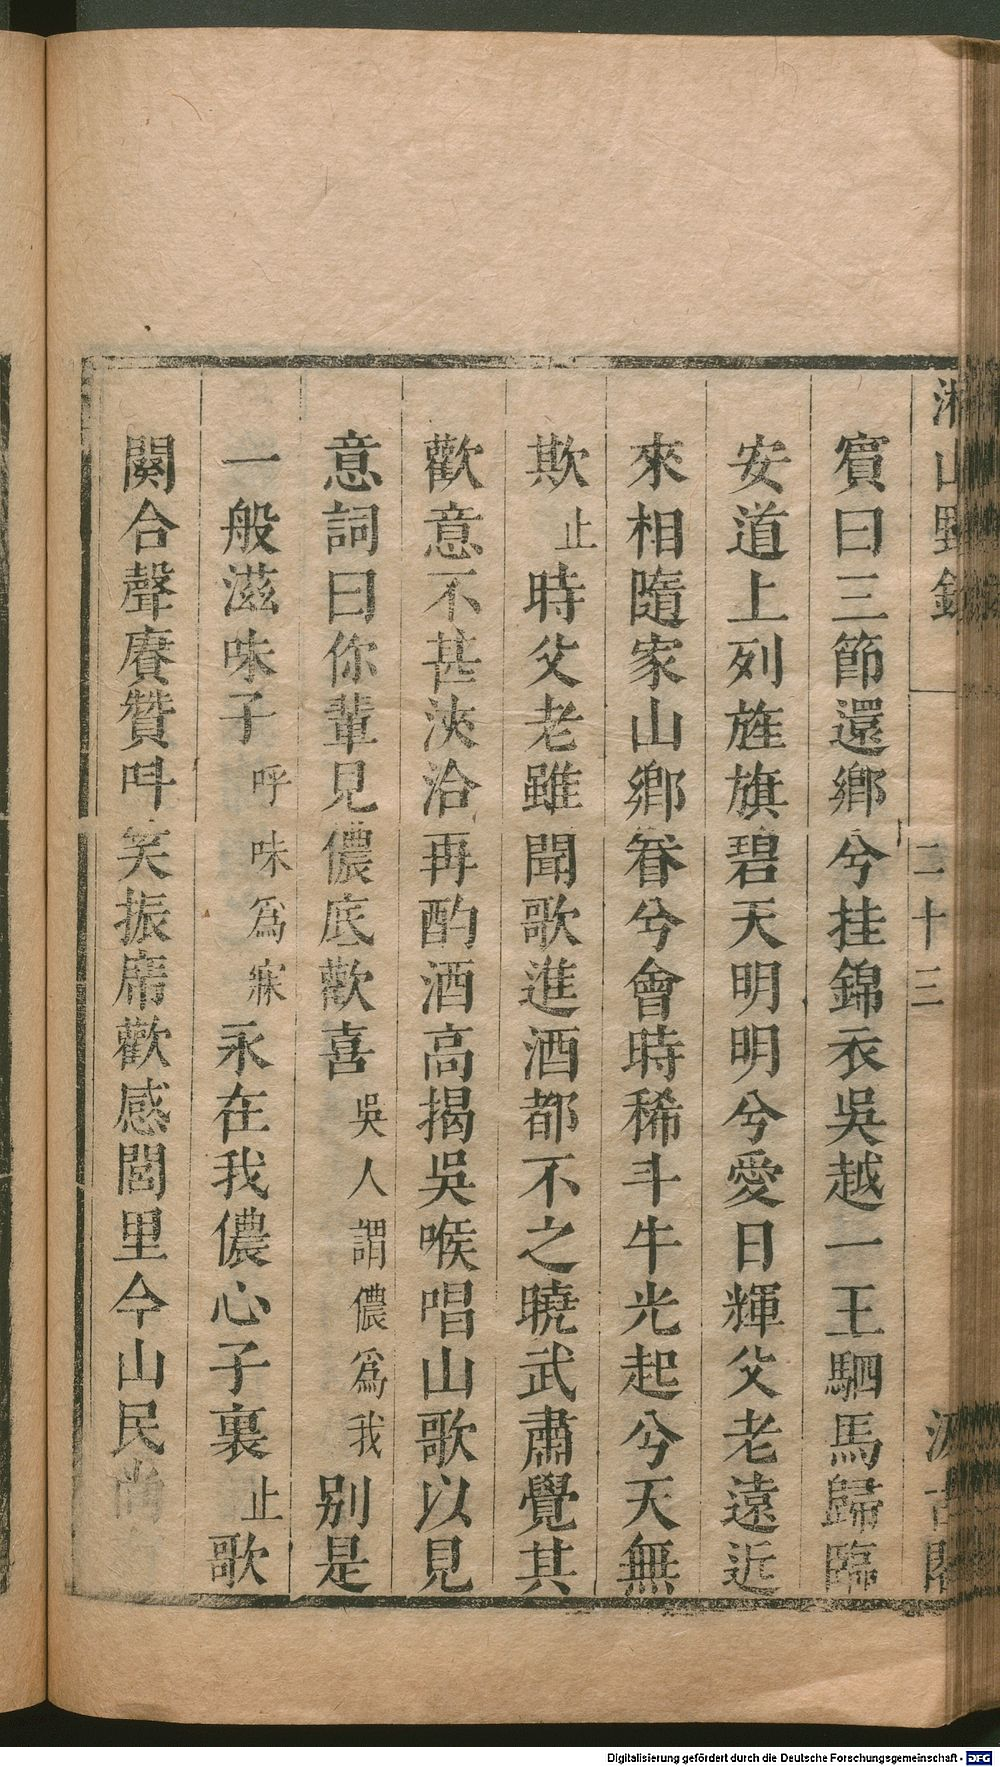 湘山野錄 二十三 汲古閣
賓曰三節還鄉兮挂錦衣吳越一王駟馬歸臨
安道上列旌旗碧天明明兮愛日輝父老遠近
來相隨家山鄉眷兮會時稀斗牛光起兮天無
欺止時父老雖聞歌進酒都不之曉武肅覺其
歡意不甚浹洽再酌酒高揭吳喉唱山歌以見
意詞曰你輩見儂底歡喜吳人謂儂爲我別是
一般滋味子呼味爲寐永在我儂心子裏止歌
闋合聲賡贊呌笑振席歡感閭里今山民尚
Digitalisierung gefördert durch die Deutsche Forschungsgemeinschaft - DFG